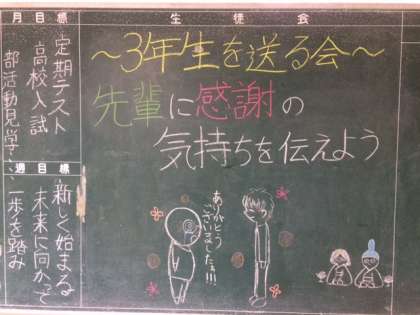 生徒会
～3年生を送る会～
先輩に感謝の
気持ちを伝えよう
ありがとう
ございましたぁ!!!
月目標
定期テスト
高校入試
部活動見学
週目標
新しく始まる
未来に向かって
一歩を踏み